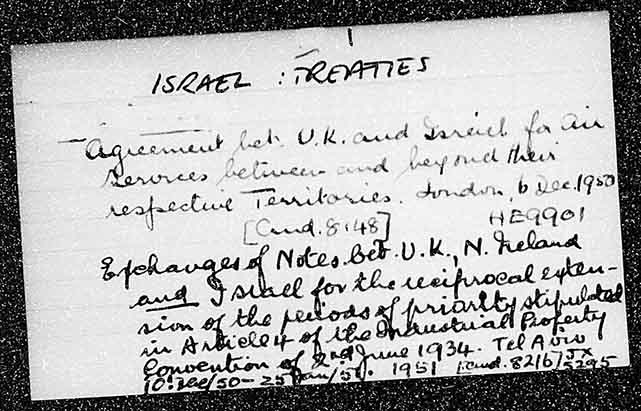 ISRAEL : TREATIES
Agreement bet. U.K. and Israel for Air
Services between and beyond their
respective Territories. London, 6 Dec. 1950
[Cmd. 8148] HE9901
Exchanges of Notes bet. U.K., N. Ireland
and Israel for the reciprocal exten-
sion of the periods of priority stipulated
in Article 4 of the Industrial Property
Convention of 2nd June 1934. Tel Aviv
10. Dec/50 - 25 Jan/51. 1951 [Cmd. 8216] JX
5295